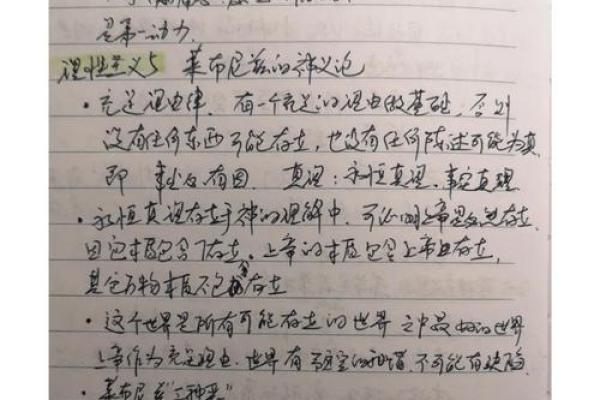 是第一动力
理性主义5 莱布尼兹的神义论
·充足理由律. 有一个充足的理由做基础, 否则
没有任何东西可能存在, 也没有任何陈述可能为真,
即 事出有因. 真理: 永恒真理、事实真理
·永恒真理存在于神的理解中. 可证明上帝是必然存在.
因它本质包含了存在. 上帝的本质包含上帝且存在,
其它万物本质不包含存在
·这个世界是所有可能存在的世界之中最好的世界
上帝作为充足理由. 世界有 的和谐. 不可能有缺陷.
·莱布尼兹"三种恶"